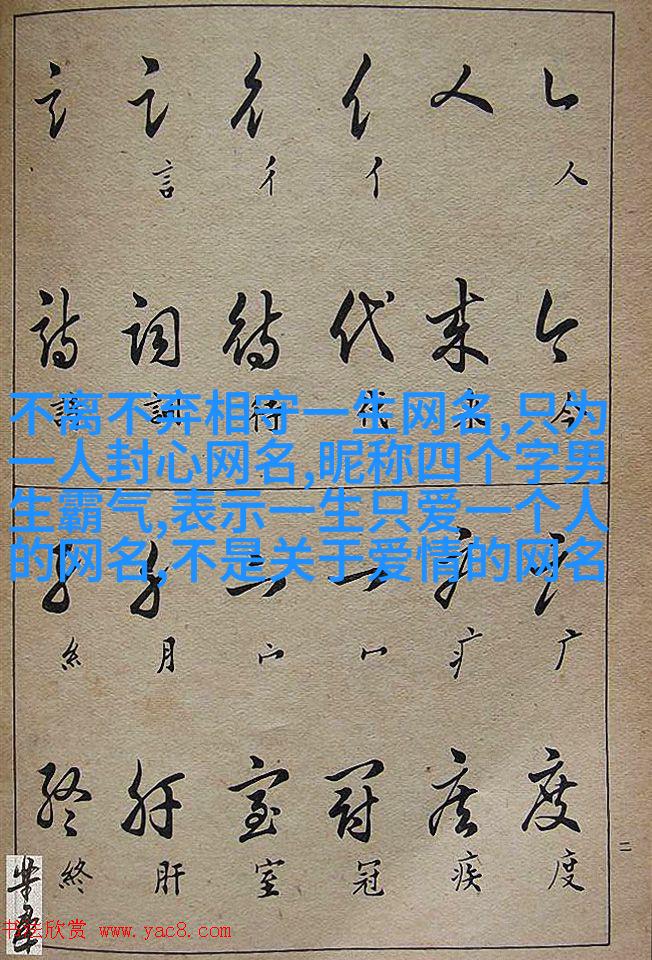 人 亻 彳 言
今 來 代 待 詞 詩
今 来 代 待 詞 詩
不离不弃相守一生网名,只为
一人封心网名,昵称四个字男
生霸气,表示一生只爱一个人
的网名,不是关于爱情的网名
广 疒 冖 宀 月 糸
度 疾 冠 室 肝 終
度 疾 冠 室 肝 終
二
书法欣赏 www.yac8.com